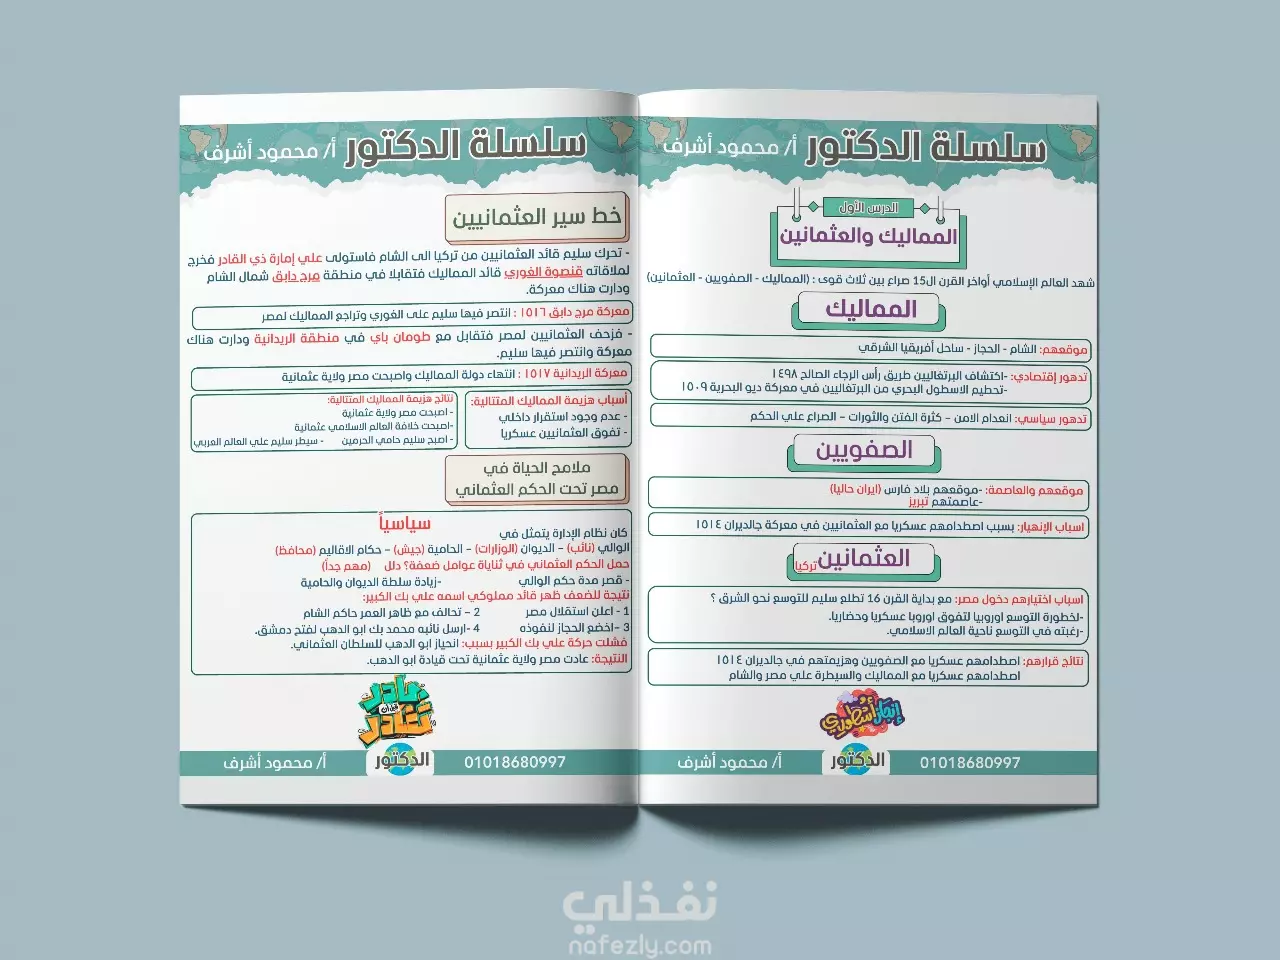 سلسلة الدكتور أ/ محمود أشرف
الدرس الأول
المماليك والعثمانين
شهد العالم الإسلامي أواخر القرن ال15 صراع بين ثلاث قوى : (المماليك - الصفويين - العثمانين)
المماليك
موقعهم: الشام - الحجاز - ساحل أفريقيا الشرقي
تدهور إقتصادي: -اكتشاف البرتغاليين طريق رأس الرجاء الصالح ١٤٩٨
-تحطيم الاسطول البحري من البرتغاليين في معركة ديو البحرية ١٥٠٩
تدهور سياسي: انعدام الامن - كثرة الفتن والثورات - الصراع علي الحكم
الصفويين
موقعهم والعاصمة: -موقعهم بلاد فارس (ايران حاليا)
-عاصمتهم تبريز
اسباب الإنهيار: بسبب اصطدامهم عسكريا مع العثمانيين في معركة جالديران ١٥١٤
العثمانين تركيا
اسباب اختيارهم دخول مصر: مع بداية القرن 16 تطلع سليم للتوسع نحو الشرق ؟
-لخطورة التوسع اوروبيا لتفوق اوروبا عسكريا وحضاريا.
-رغبته في التوسع ناحية العالم الاسلامي.
نتائج قرارهم: اصطدامهم عسكريا مع الصفويين وهزيمتهم في جالديران ١٥١٤
اصطدامهم عسكريا مع المماليك والسيطرة علي مصر والشام
إنجاز أسطوري
01018680997 الدكتور أ/ محمود أشرف
سلسلة الدكتور أ/ محمود أشرف
خط سير العثمانيين
- تحرك سليم قائد العثمانيين من تركيا الى الشام فاستولى علي إمارة ذي القادر فخرج
لملاقاته قنصوة الغوري قائد المماليك فتقابلا في منطقة مرج دابق شمال الشام
ودارت هناك معركة.
معركة مرج دابق ١٥١٦ : انتصر فيها سليم على الغوري وتراجع المماليك لمصر
- فزحف العثمانيين لمصر فتقابل مع طومان باي في منطقة الريدانية ودارت هناك
معركة وانتصر فيها سليم.
معركة الريدانية ١٥١٧ : انتهاء دولة المماليك واصبحت مصر ولاية عثمانية
أسباب هزيمة المماليك المتتالية:
- عدم وجود استقرار داخلي
- تفوق العثمانيين عسكريا
نتائج هزيمة المماليك المتتالية:
- اصبحت مصر ولاية عثمانية
- اصبحت خلافة العالم الاسلامي عثمانية
- اصبح سليم حامي الحرمين - سيطر سليم علي العالم العربي
ملامح الحياة في
مصر تحت الحكم العثماني
سياسياً
كان نظام الإدارة يتمثل في
الوالي (نائب) - الديوان (الوزارات) - الحامية (جيش) - حكام الاقاليم (محافظ)
حمل الحكم العثماني في ثناياة عوامل ضعفة؟ دلل (مهم جداً)
- قصر مدة حكم الوالي -زيادة سلطة الديوان والحامية
نتيجة للضعف ظهر قائد مملوكي اسمه علي بك الكبير:
1 - اعلن استقلال مصر 2 - تحالف مع ظاهر العمر حاكم الشام
3 -اخضع الحجاز لنفوذه 4 -ارسل نائبه محمد بك ابو الدهب لفتح دمشق.
فشلت حركة علي بك الكبير بسبب: انحياز ابو الدهب للسلطان العثماني.
النتيجة: عادت مصر ولاية عثمانية تحت قيادة ابو الدهب.
01018680997 الدكتور أ/ محمود أشرف
نفذلي
nafezly.com